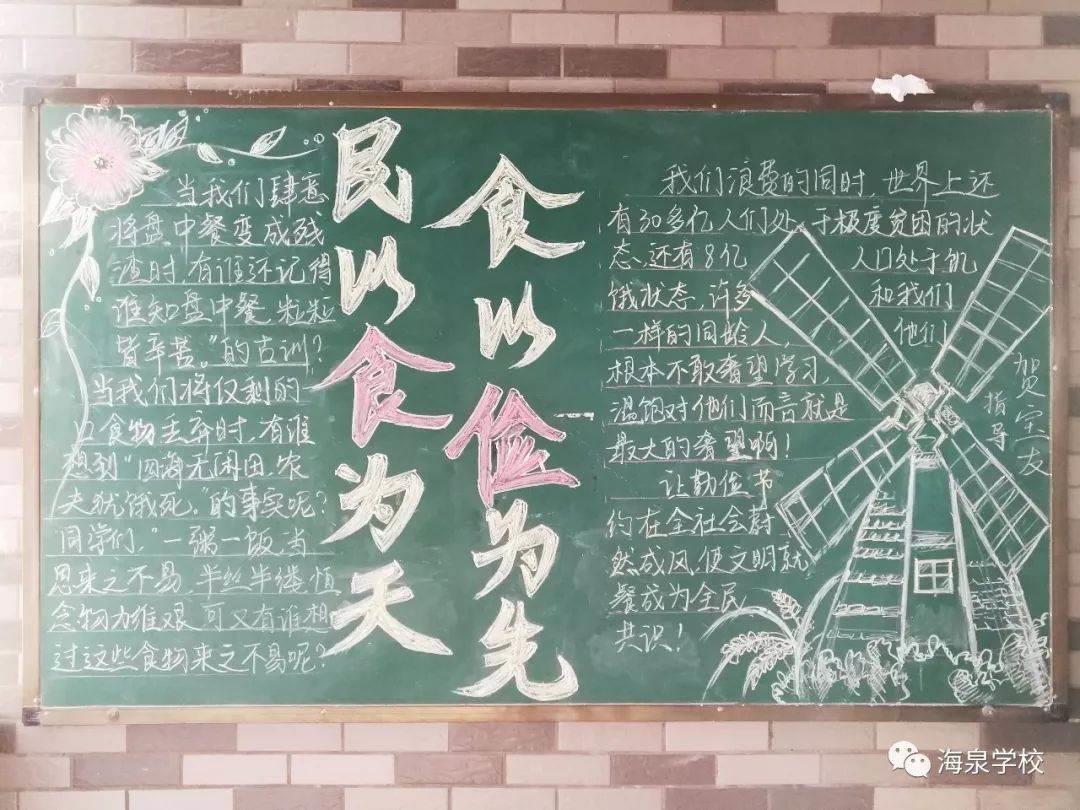 当我们肆意
将盘中餐变成残
渣时，有谁还记得
谁知盘中餐，粒粒
皆辛苦。”的古训？
当我们将仅剩的
口食物丢弃时，有谁
想到“四海无闲田，农
夫犹饿死。”的事实呢？
同学们，“一粥一饭，当
思来之不易，半丝半缕，恒
念物力维艰，可又有谁想
过这些食物来之不易呢？
民以食为天
食以俭为先
我们浪费的同时，世界上还
有30多亿人们处于极度贫困的状
态、还有8亿人口处于饥
饿状态，许多和我们
一样的同龄人，他们
根本不敢奢望学习，
温饱对他们而言就是
最大的奢望啊！
让勤俭节
约在全社会蔚
然成风，使文明就
餐成为全民
共识！
指导
贺宝友
海泉学校